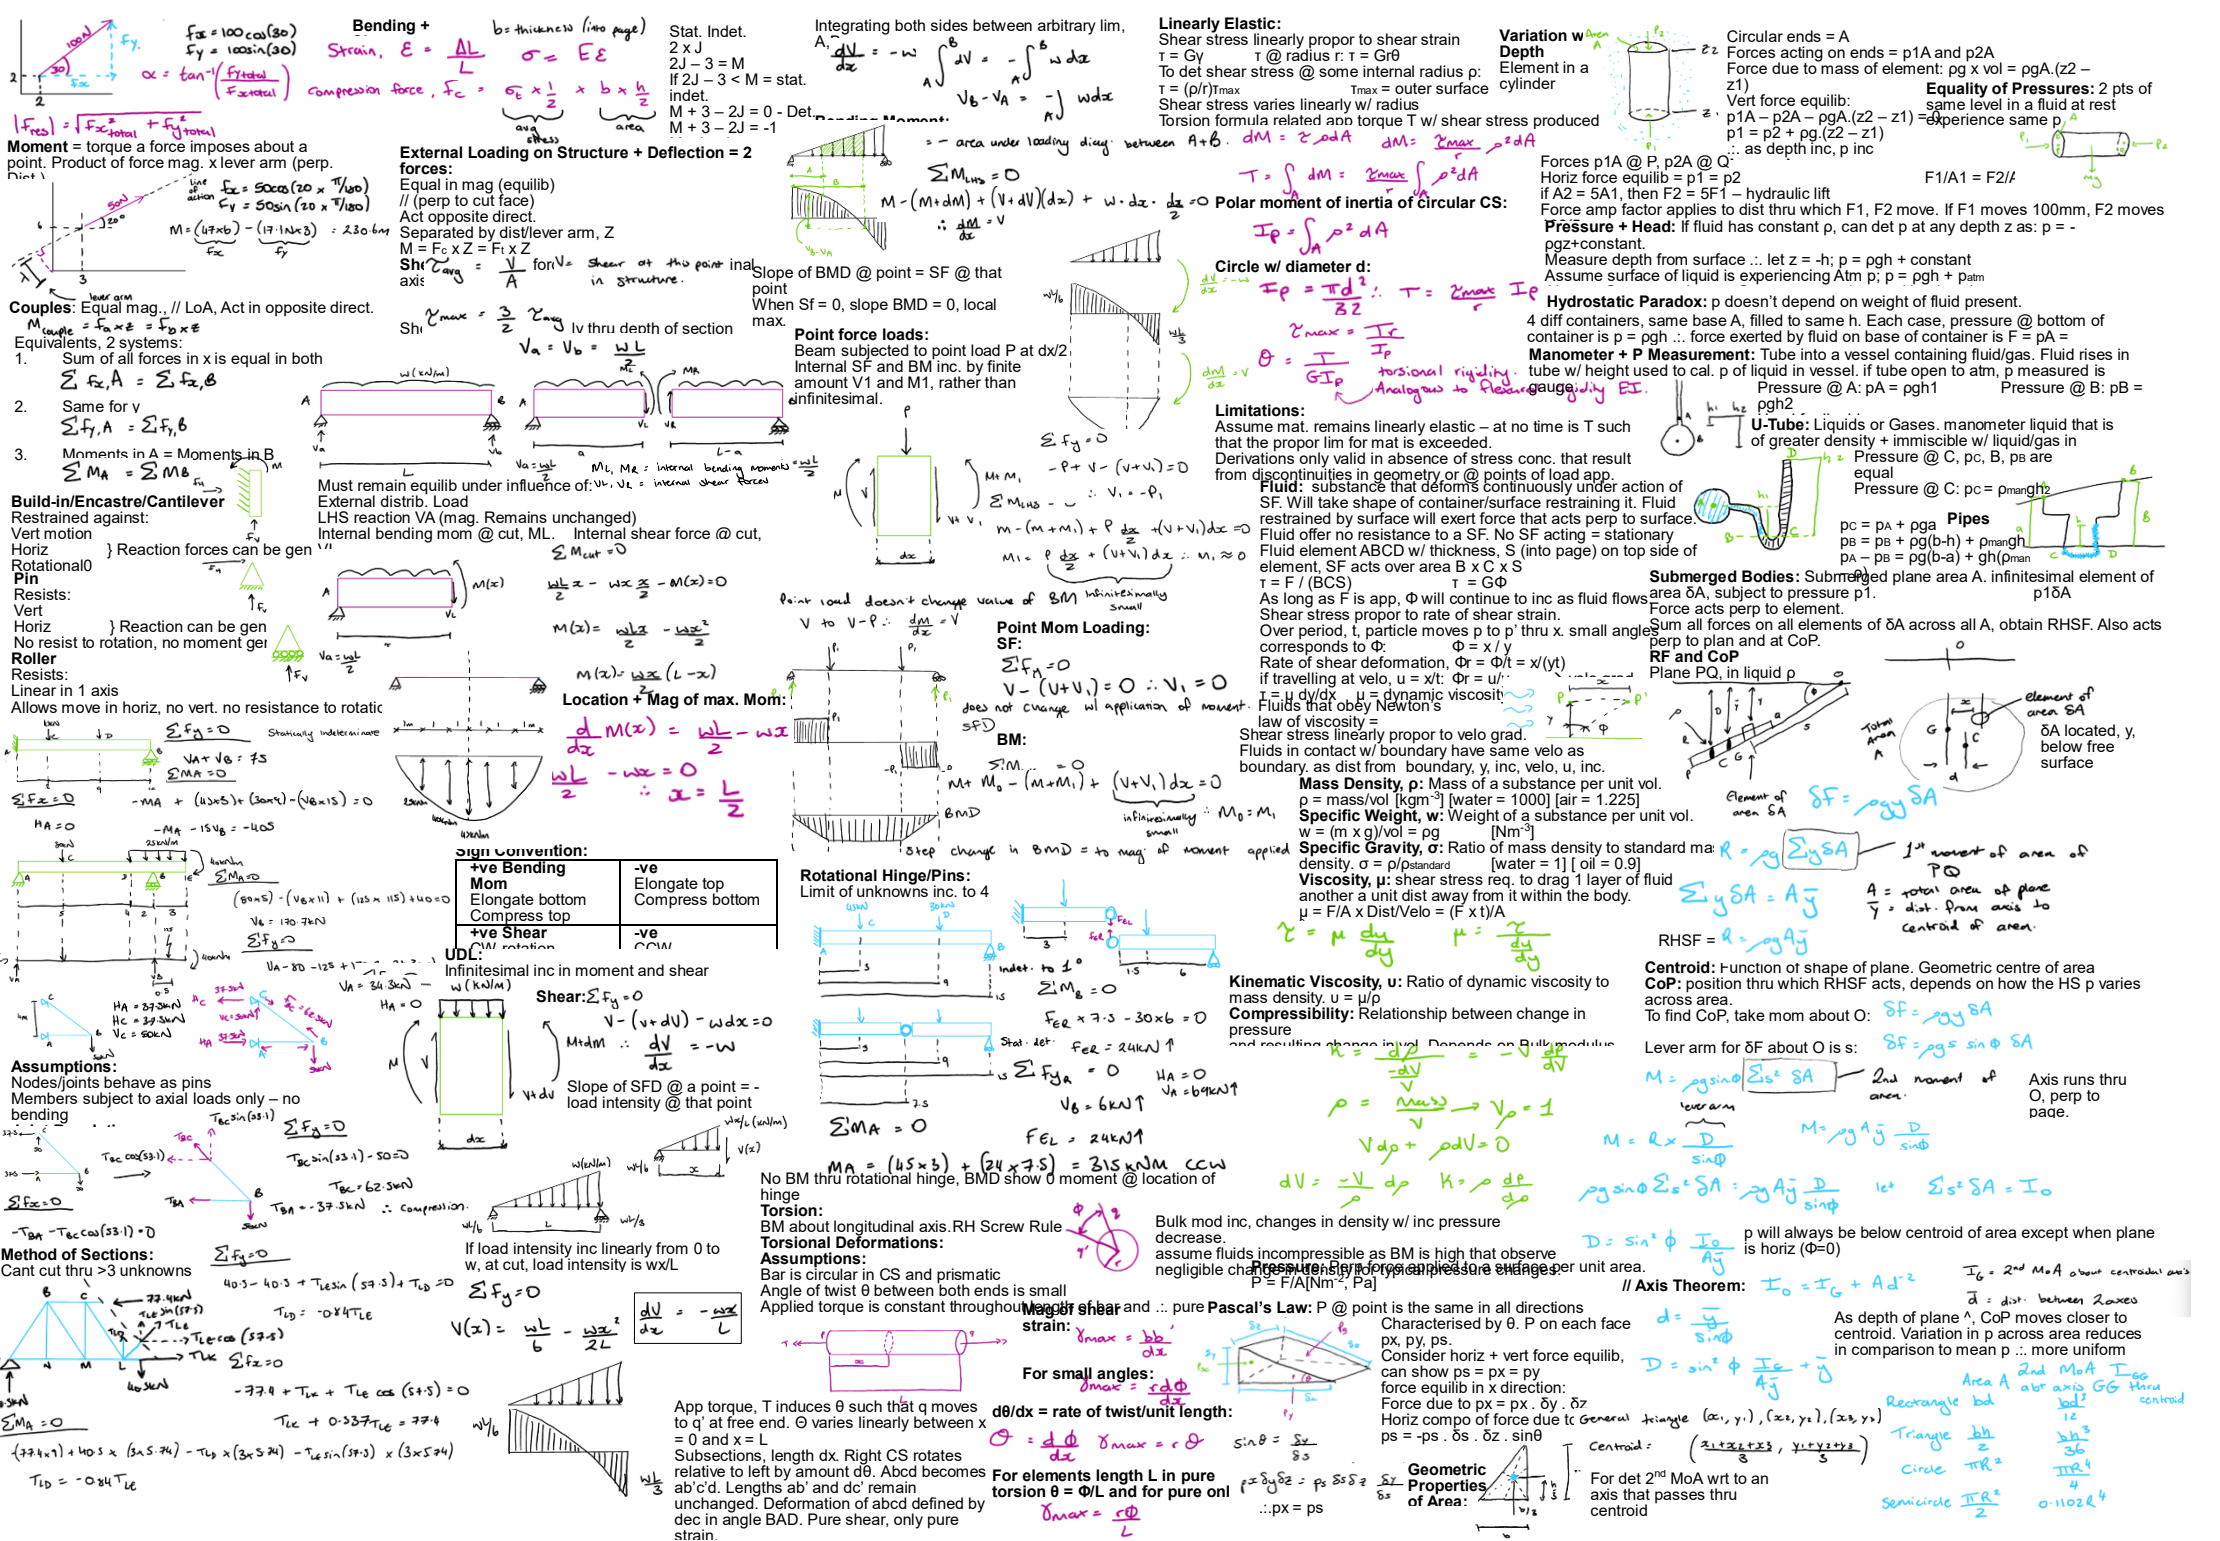 100N
30
fy
fx
2
2
fx = 100cos(30)
fy = 100sin(30)
α = tan⁻¹(fytotal / Fxtotal)
|Fres| = √(Fx²total + Fy²total)
Moment = torque a force imposes about a
point. Product of force mag. x lever arm (perp.
line of action
50N
20°
6
3
lever arm
fx = 50cos(20 x π/180)
Fy = 50sin(20 x π/180)
M = (47x6) - (17.1N x 3) = 230.6m
fx fy
Couples: Equal mag., // LoA, Act in opposite direct.
Mcouple = Fa x z = Fb x z
Equivalents, 2 systems:
1. Sum of all forces in x is equal in both
Σ fx,A = Σ fx,B
2. Same for y
Σ fy,A = Σ fy,B
3. Moments in A = Moments in B
Σ MA = Σ MB
Build-in/Encastre/Cantilever
Restrained against:
Vert motion
Horiz } Reaction forces can be gen
Rotational0
Pin
Resists:
Vert
Horiz } Reaction can be gen
No resist to rotation, no moment ger
Roller
Resists:
Linear in 1 axis
Allows move in horiz, no vert. no resistance to rotatic
Σfy = 0
Statically indeterminate
VA + VB = 75
ΣMA = 0
Σfx = 0
-MA + (45x5) + (30x9) - (VB x 15) = 0
HA = 0
-MA - 15VB = -405
80kN
25kN/m
40kNm
ΣMA = 0
(80x5) - (VB x 11) + (125 x 11.5) + 40 = 0
VB = 170.7kN
Σfy = 0
VA = 34.3kN
HA = 0
HA = 37.5kN
HC = 37.5kN
VC = 50kN
Assumptions:
Nodes/joints behave as pins
Members subject to axial loads only – no
bending
TBC sin(53.1)
TBC
TBC cos(53.1)
TBA
Σfy = 0
TBC sin(53.1) - 50 = 0
TBC = 62.5kN
TBA = -37.5kN ∴ compression.
Σfx = 0
-TBA - TBC cos(53.1) = 0
Method of Sections:
Cant cut thru >3 unknowns
Σfy = 0
40.5 - 40.5 + TLE sin(57.5) + TLD = 0
TLD = -0.84TLE
77.4kN
TLE sin(57.5)
TLE cos(57.5)
TLK
40.5kN
Σfx = 0
-77.4 + TLK + TLE cos(57.5) = 0
TLK + 0.537TLE = 77.4
ΣMA = 0
(77.4x9) + 40.5 x (3x5.74) - TLD x (3x5.74) - TLE sin(57.5) x (3x5.74)
TLD = -0.84TLE
Bending +
b = thickness (into page)
Strain, ε = ΔL / L σ = Eε
compression force, fc = σt x 1/2 x b x h/2
avg stress area
External Loading on Structure + Deflection = 2
forces:
Equal in mag (equilib)
// (perp to cut face)
Act opposite direct.
Separated by dist/lever arm, Z
M = Fc x Z = Ft x Z
τavg = V / A
V = shear at this point in structure.
τmax = 3/2 τavg
ly thru depth of section
Va = Vb = wL / 2
w(kN/m)
A B
L
Va Vb
ML MR
VL VR
a L-a
Va = wL/2
ML, MR = internal bending moments
VL, VR = internal shear forces
Must remain equilib under influence of:
External distrib. Load
LHS reaction VA (mag. Remains unchanged)
Internal bending mom @ cut, ML. Internal shear force @ cut,
ΣMcut = 0
wL/2 x - wx x/2 - M(x) = 0
M(x) = wLx/2 - wx²/2
M(x) = wx/2 (L-x)
Location + Mag of max. Mom:
d/dx M(x) = wL/2 - wx
wL/2 - wx = 0
∴ x = L/2
Sign Convention:
+ve Bending
Mom
Elongate bottom
Compress top
-ve
Elongate top
Compress bottom
+ve Shear
CW rotation
-ve
CCW
UDL:
Infinitesimal inc in moment and shear
w(kN/m)
M V M+dM V+dV dx
Shear: Σfy = 0
V - (V+dV) - wdx = 0
∴ dV/dx = -w
Slope of SFD @ a point = -
load intensity @ that point
w(kN/m)
wx/L (kN/m)
V(x)
wL/6 wL/3
L
x
If load intensity inc linearly from 0 to
w, at cut, load intensity is wx/L
Σfy = 0
V(x) = wL/6 - wx²/2L
dV/dx = -wx/L
wL/6
wL/3
Stat. Indet.
2 x J
2J – 3 = M
If 2J – 3 < M = stat.
indet.
M + 3 – 2J = 0 - Det.
M + 3 – 2J = -1
Integrating both sides between arbitrary lim,
A,
dV/dx = -w ∫AB dV = -∫AB w dx
VB - VA = -∫ wdx
Bending Moment:
= - area under loading diag. between A+B.
ΣMLHS = 0
M - (M+dM) + (V+dV)(dx) + w.dx.dx/2 = 0
∴ dM/dx = V
Slope of BMD @ point = SF @ that
point
When Sf = 0, slope BMD = 0, local
max.
dV/dx = -w
dM/dx = V
Point force loads:
Beam subjected to point load P at dx/2
Internal SF and BM inc. by finite
amount V1 and M1, rather than
infinitesimal.
P
M V M+M1 V+V1 dx
Σfy = 0
-P + V - (V+V1) = 0
∴ V1 = -P1
M - (M+M1) + P dx/2 + (V+V1)dx = 0
M1 = P dx/2 + (V+V1)dx ∴ M1 ≈ 0
infinitesimally small
Point load doesn't change value of BM
V to V-P ∴ dM/dx = V
Point Mom Loading:
SF:
Σfy = 0
V - (V+V1) = 0 ∴ V1 = 0
does not change w/ application of moment.
SFD
BM:
M + M0 - (M+M1) + (V+V1)dx = 0
infinitesimally small ∴ M0 = M1
BMD
Step change in BMD = to mag. of moment applied
Rotational Hinge/Pins:
Limit of unknowns inc. to 4
45kN 30kN
Indet. to 1°
ΣMB = 0
FER x 7.5 - 30x6 = 0
FER = 24kN↑
Stat. det.
ΣFy = 0
HA = 0
VA = 69kN↑
VB = 6kN↑
ΣMA = 0
FEL = 24kN↑
MA = (45x3) + (24x7.5) = 315kNm CCW
No BM thru rotational hinge, BMD show 0 moment @ location of
hinge
Torsion:
BM about longitudinal axis.RH Screw Rule
Torsional Deformations:
Assumptions:
Bar is circular in CS and prismatic
Angle of twist θ between both ends is small
Applied torque is constant throughout length of bar and .:. pure
App torque, T induces θ such that q moves
to q' at free end. Θ varies linearly between x
= 0 and x = L
Subsections, length dx. Right CS rotates
relative to left by amount dθ. Abcd becomes
ab'c'd. Lengths ab' and dc' remain
unchanged. Deformation of abcd defined by
dec in angle BAD. Pure shear, only pure
strain.
Mag of shear
strain:
γmax = bb' / dx
For small angles:
γmax = rdΦ / dx
dθ/dx = rate of twist/unit length:
θ = dΦ/dx γmax = rθ
For elements length L in pure
torsion θ = Φ/L and for pure onl
γmax = rΦ / L
Linearly Elastic:
Shear stress linearly propor to shear strain
τ = Gγ τ @ radius r: τ = Grθ
To det shear stress @ some internal radius ρ:
τ = (ρ/r)τmax τmax = outer surface
Shear stress varies linearly w/ radius
Torsion formula related app torque T w/ shear stress produced
dM = τρdA dM = τmax/r ρ²dA
T = ∫A dM = τmax/r ∫A ρ²dA
Polar moment of inertia of circular CS:
Ip = ∫A ρ² dA
Circle w/ diameter d:
Ip = πd⁴/32 ∴ T = τmax/r Ip
τmax = Tr / Ip
θ = T / GIp
torsional rigidity.
Analogous to flexural rigidity EI.
Limitations:
Assume mat. remains linearly elastic – at no time is T such
that the propor lim for mat is exceeded.
Derivations only valid in absence of stress conc. that result
from discontinuities in geometry or @ points of load app.
Fluid: substance that deforms continuously under action of
SF. Will take shape of container/surface restraining it. Fluid
restrained by surface will exert force that acts perp to surface.
Fluid offer no resistance to a SF. No SF acting = stationary
Fluid element ABCD w/ thickness, S (into page) on top side of
element, SF acts over area B x C x S
τ = F / (BCS) τ = GΦ
As long as F is app, Φ will continue to inc as fluid flows
Shear stress propor to rate of shear strain.
Over period, t, particle moves p to p' thru x. small angles
corresponds to Φ: Φ = x / y
Rate of shear deformation, Φr = Φ/t = x/(yt)
if travelling at velo, u = x/t: Φr = u/
τ = μ dy/dx μ = dynamic viscosity
Fluids that obey Newton's
law of viscosity =
Shear stress linearly propor to velo grad.
Fluids in contact w/ boundary have same velo as
boundary. as dist from boundary, y, inc, velo, u, inc.
Mass Density, ρ: Mass of a substance per unit vol.
ρ = mass/vol [kgm-3] [water = 1000] [air = 1.225]
Specific Weight, w: Weight of a substance per unit vol.
w = (m x g)/vol = ρg [Nm-3]
Specific Gravity, σ: Ratio of mass density to standard ma
density. σ = ρ/ρstandard [water = 1] [ oil = 0.9]
Viscosity, μ: shear stress req. to drag 1 layer of fluid
another a unit dist away from it within the body.
μ = F/A x Dist/Velo = (F x t)/A
τ = μ du/dy μ = τ / (du/dy)
Kinematic Viscosity, υ: Ratio of dynamic viscosity to
mass density. υ = μ/ρ
Compressibility: Relationship between change in
pressure
and resulting change in vol. Depends on Bulk modulus
K = dp / (-dV/V) = -V dp/dV
ρ = mass/V → Vρ = 1
Vdρ + ρdV = 0
dV = -V/ρ dρ K = ρ dp/dρ
Bulk mod inc, changes in density w/ inc pressure
decrease.
assume fluids incompressible as BM is high that observe
negligible change in density for typical pressure changes.
Pressure: Perp force applied to a surface per unit area.
P = F/A[Nm-2, Pa]
Pascal's Law: P @ point is the same in all directions
Characterised by θ. P on each face
px, py, ps.
Consider horiz + vert force equilib,
can show ps = px = py
force equilib in x direction:
Force due to px = px . δy . δz
Horiz compo of force due tc
ps = -ps . δs . δz . sinθ
sinθ = δy / δs
px δyδz = ps δsδz δy/δs
.:.px = ps
Geometric
Properties
of Area:
General triangle (x1, y1), (x2, y2), (x3, y3)
Centroid: (x1+x2+x3 / 3, y1+y2+y3 / 3)
For det 2nd MoA wrt to an
axis that passes thru
centroid
Variation w
Depth
Element in a
cylinder
Area A
P2
z2
z1
P1
Circular ends = A
Forces acting on ends = p1A and p2A
Force due to mass of element: ρg x vol = ρgA.(z2 –
z1)
Vert force equilib:
p1A – p2A – ρgA.(z2 – z1) = 0
p1 = p2 + ρg.(z2 – z1)
.:. as depth inc, p inc
Equality of Pressures: 2 pts of
same level in a fluid at rest
experience same p
Forces p1A @ P, p2A @ Q
Horiz force equilib = p1 = p2 F1/A1 = F2/
if A2 = 5A1, then F2 = 5F1 – hydraulic lift
Force amp factor applies to dist thru which F1, F2 move. If F1 moves 100mm, F2 moves
Pressure + Head: If fluid has constant ρ, can det p at any depth z as: p = -
ρgz+constant.
Measure depth from surface .:. let z = -h; p = ρgh + constant
Assume surface of liquid is experiencing Atm p; p = ρgh + patm
Hydrostatic Paradox: p doesn't depend on weight of fluid present.
4 diff containers, same base A, filled to same h. Each case, pressure @ bottom of
container is p = ρgh .:. force exerted by fluid on base of container is F = pA =
Manometer + P Measurement: Tube into a vessel containing fluid/gas. Fluid rises in
tube w/ height used to cal. p of liquid in vessel. if tube open to atm, p measured is
gauge.
Pressure @ A: pA = ρgh1 Pressure @ B: pB =
ρgh2
U-Tube: Liquids or Gases. manometer liquid that is
of greater density + immiscible w/ liquid/gas in
Pressure @ C, pC, B, pB are
equal
Pressure @ C: pC = ρmangh2
Pipes
pC = pA + ρga
pB = pB + ρg(b-h) + ρmangh
pA – pB = ρg(b-a) + gh(ρman
– ρ)
Submerged Bodies: Submerged plane area A. infinitesimal element of
area δA, subject to pressure p1. p1δA
Force acts perp to element.
Sum all forces on all elements of δA across all A, obtain RHSF. Also acts
perp to plan and at CoP.
RF and CoP
Plane PQ, in liquid ρ
element of area δA
Total Area A
δA located, y,
below free
surface
Element of area δA
δF = ρgyδA
R = ρg ΣyδA
1st moment of area of PQ
ΣyδA = Aȳ
A = total area of plane
ȳ = dist. from axis to centroid of area.
RHSF = R = ρgAȳ
Centroid: Function of shape of plane. Geometric centre of area
CoP: position thru which RHSF acts, depends on how the HS p varies
across area.
To find CoP, take mom about O: δF = ρgyδA
Lever arm for δF about O is s: δF = ρgs sinΦ δA
M = ρgsinΦ Σs² δA
2nd moment of area.
Axis runs thru
O, perp to
page.
lever arm
M = R x D/sinΦ M = ρgAȳ D/sinΦ
ρgsinΦ Σs²δA = ρgAȳ D/sinΦ let Σs²δA = Io
D = sin²Φ Io/Aȳ
p will always be below centroid of area except when plane
is horiz (Φ=0)
// Axis Theorem: Io = IG + Ad²
IG = 2nd MoA about centroidal axis
d = dist. between 2 axes
d = ȳ / sinΦ
D = sin²Φ IG/Aȳ + ȳ
As depth of plane ^, CoP moves closer to
centroid. Variation in p across area reduces
in comparison to mean p .:. more uniform
Area A 2nd MoA IGG abt axis GG thru centroid
Rectangle bd bd³/12
Triangle bh/2 bh³/36
Circle πR² πR⁴/4
Semicircle πR²/2 0.1102R⁴